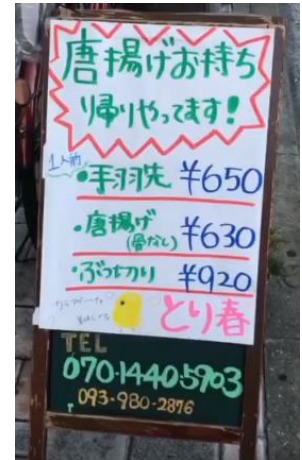 唐揚げお持ち
帰りやってます!
1人前
・手羽先 ¥650
・唐揚げ ¥630
(骨なし)
・ぶつ切り ¥920
とり春
TEL
070-1440-5903
093-980-2876